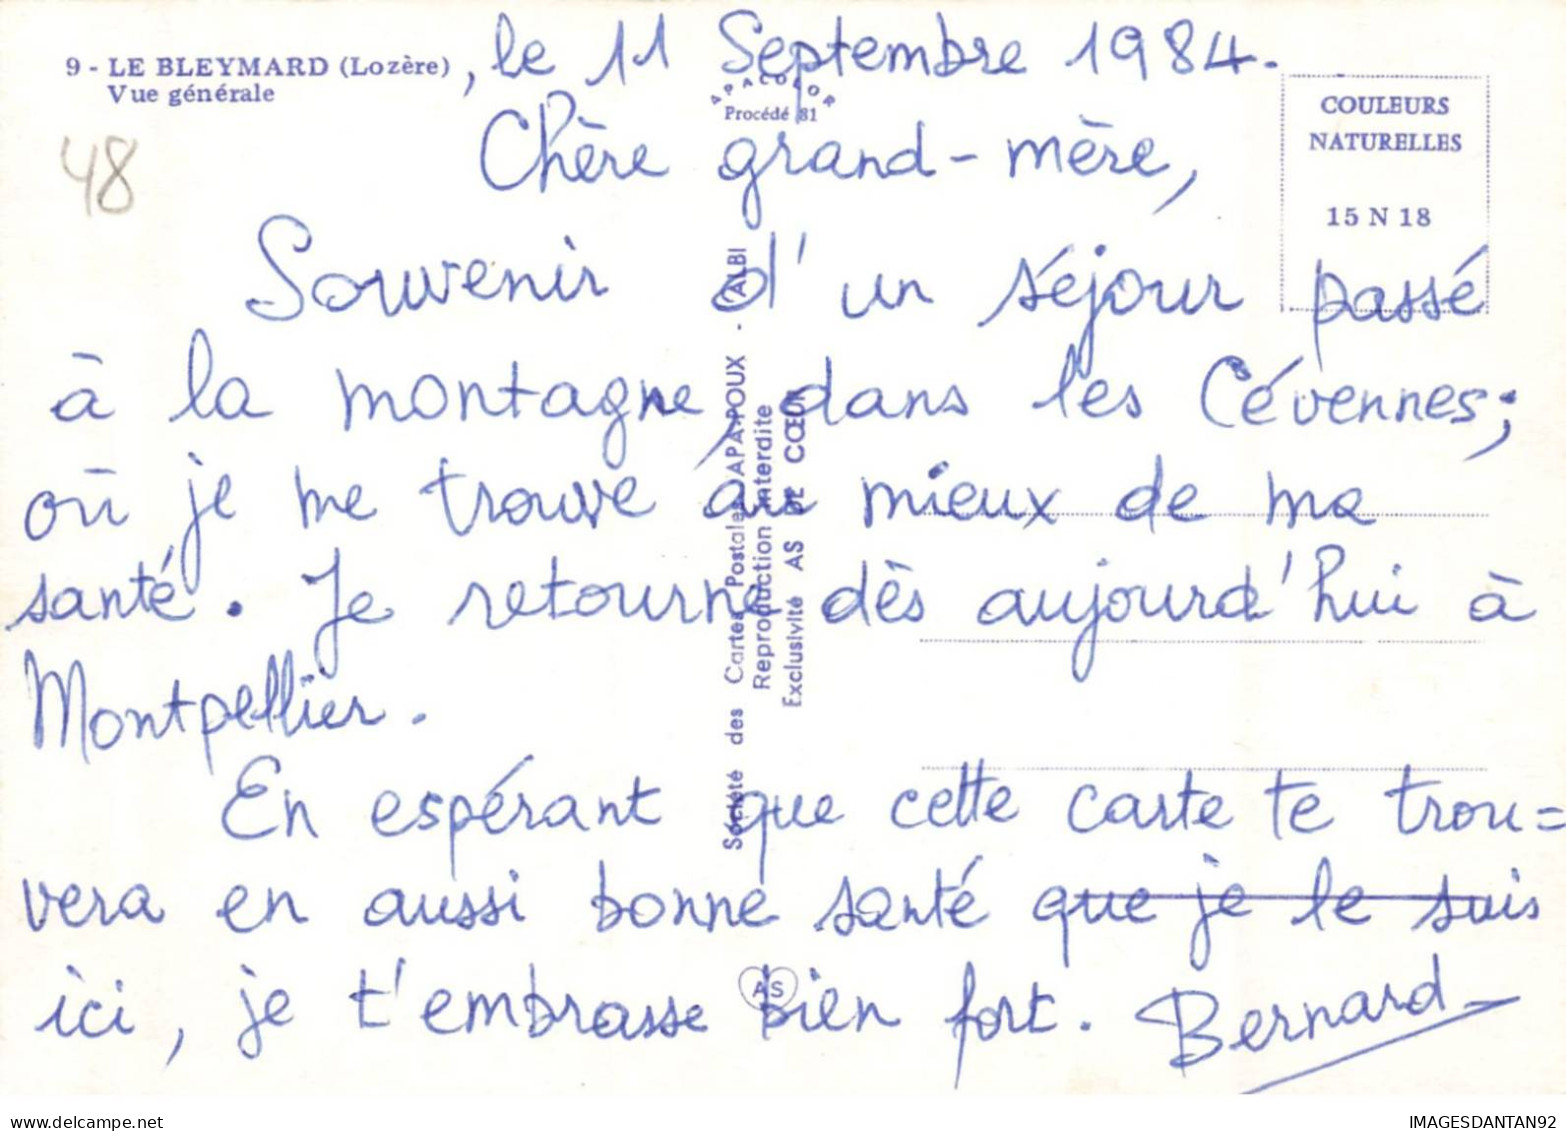 9 - LE BLEYMARD (Lozère), le 11 Septembre 1984.
Vue générale
APACOLOR
Procédé 81
COULEURS
NATURELLES
15 N 18
48
Chère grand-mère,
Souvenir d'un séjour passé
à la montagne, dans les Cévennes;
où je me trouve au mieux de ma
santé. Je retourne dès aujourd'hui à
Montpellier.
En espérant que cette carte te trou=
vera en aussi bonne santé que je le suis
ici, je t'embrasse bien fort. Bernard
Société des Cartes Postales APA-POUX - ALBI
Reproduction interdite
Exclusivité AS DE CŒUR
AS
delcampe.net
IMAGESDANTAN92